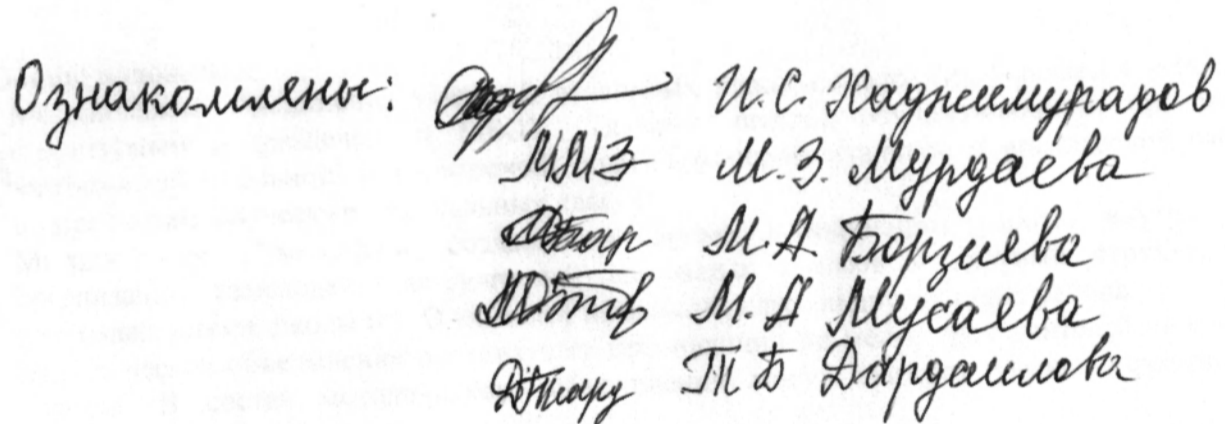 Ознакомлены: И.С. Хаджимурадов
ММЗ М.З. Мурдаева
М.А. Борзиева
М.А Мусаева
Т Б Дардаилова